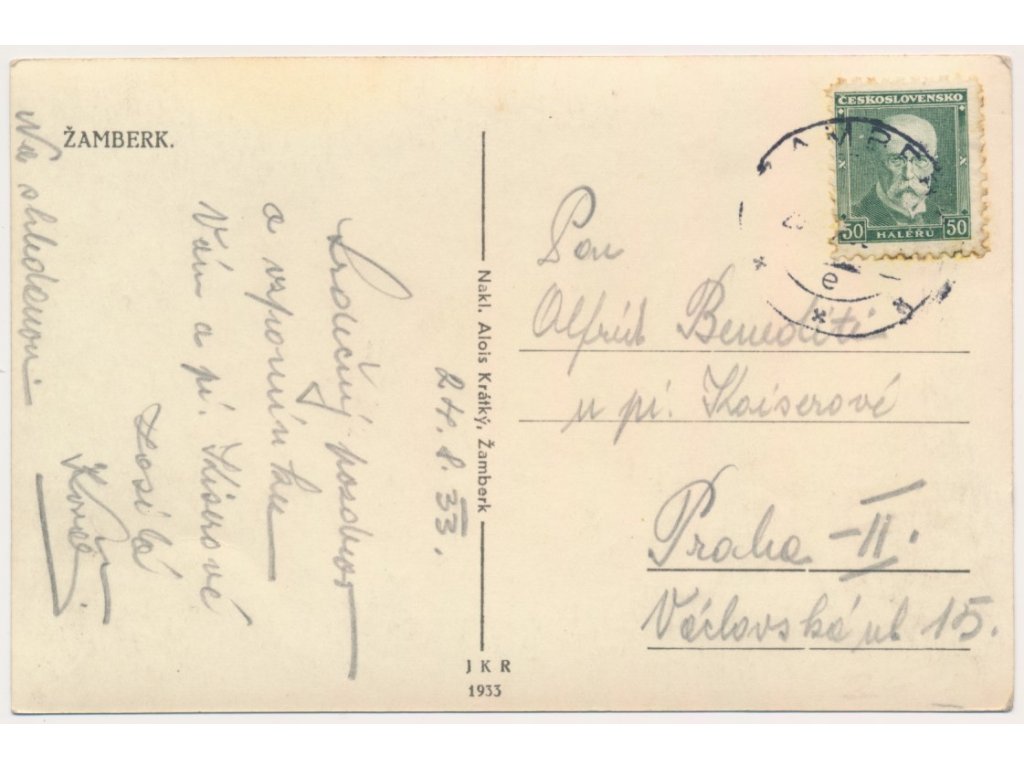 ŽAMBERK.
ČESKOSLOVENSKO
50 HALÉŘŮ 50
Srdečný pozdrav
a vzpomínku
Vám a pí. Kiserové
Na shledanou
24. 8. 33.
Nakl. Alois Krátký, Žamberk
JKR
1933
Pan
Alfréd Benedikti
u pí. Kaiserové
Praha - II.
Václavská ul 15.